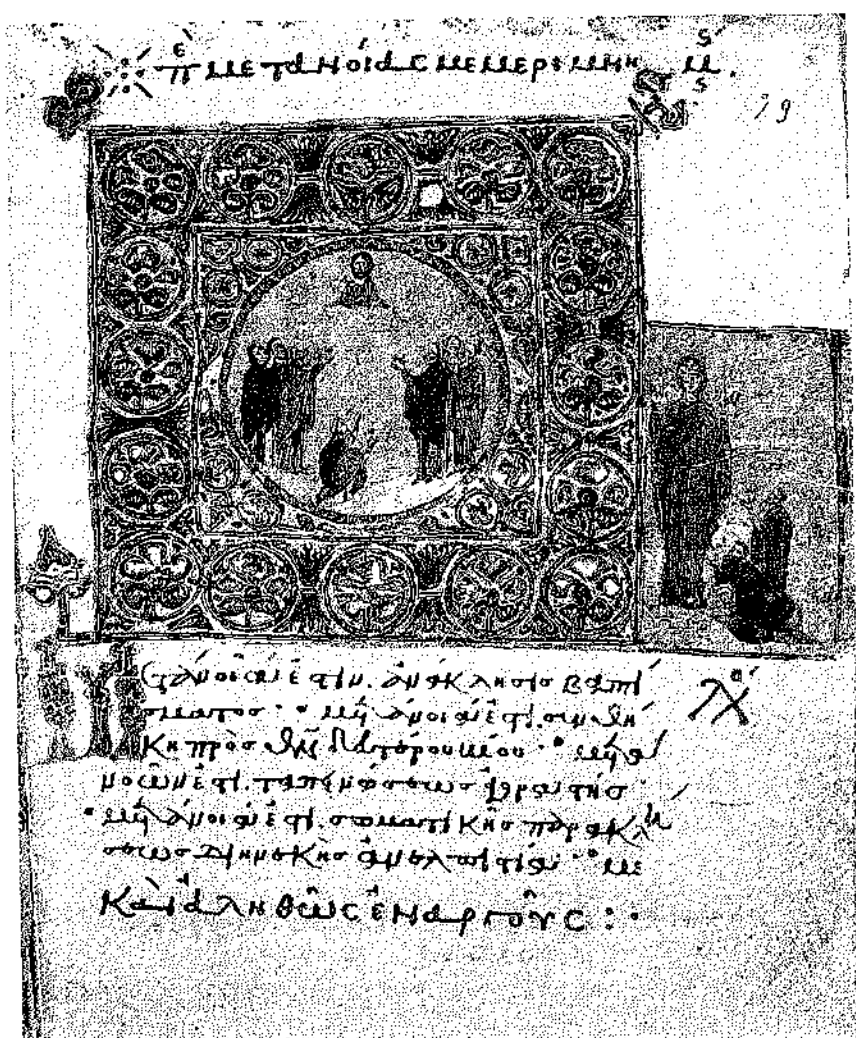 ε΄ π μετανοίας μεμεριμνη μ
79
ετάνοιά ἐστιν. ἀνάκλησις βαπτί
σματος · μετάνοιά ἐστι. συνθή
κη πρὸς θν δευτέρου βίου · μετά
νοιά ἐστι. ταπεινώσεως ἀγοραστής ·
μετάνοιά ἐστι. σωματικῆς παρακλή
σεως διηνεκὴς ἀνελπιστία · με
Καὶ ἀληθῶς ἐναργοῦς :·